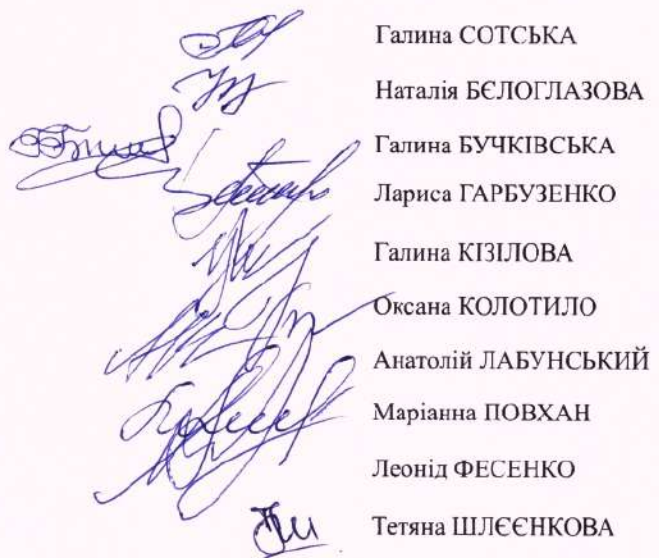 Галина СОТСЬКА
Наталія БЄЛОГЛАЗОВА
Галина БУЧКІВСЬКА
Лариса ГАРБУЗЕНКО
Галина КІЗІЛОВА
Оксана КОЛОТИЛО
Анатолій ЛАБУНСЬКИЙ
Маріанна ПОВХАН
Леонід ФЕСЕНКО
Тетяна ШЛЄЄНКОВА